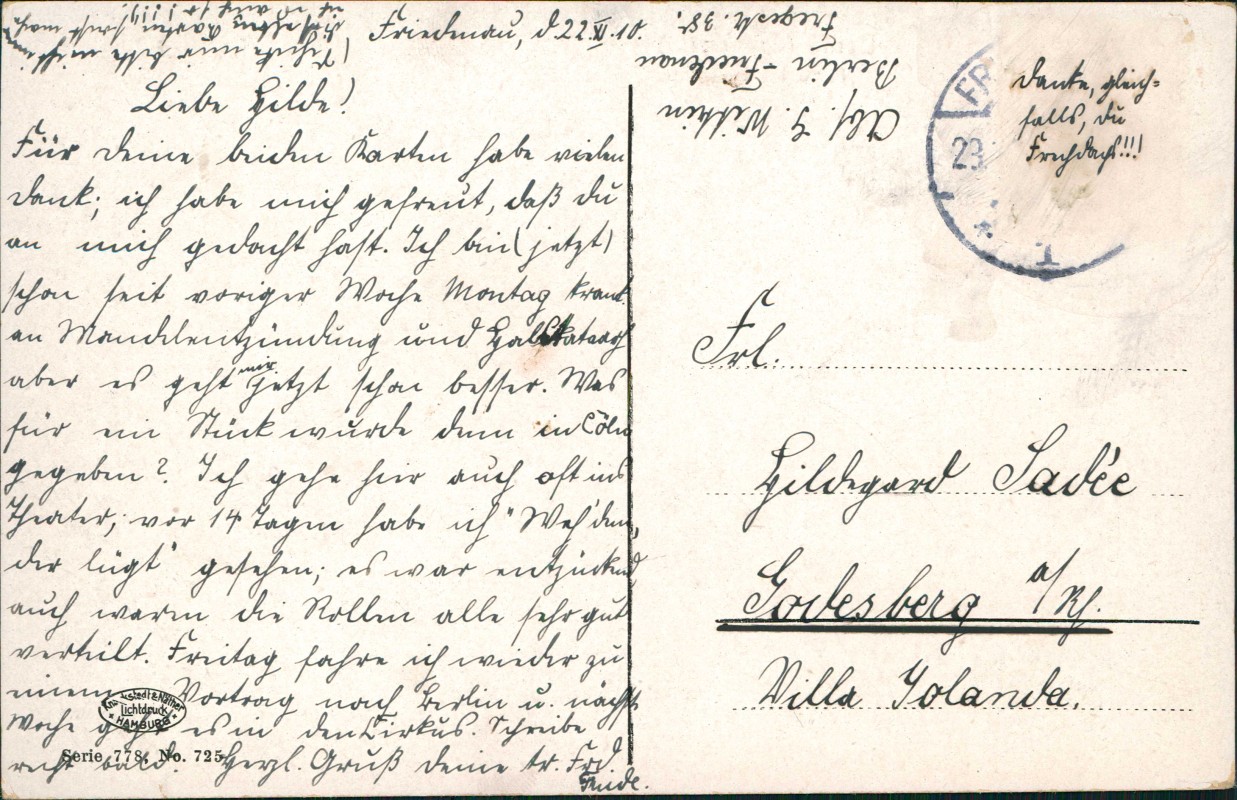 Friedenau, d. 22. IX. 10.
Liebe Hilde!
Für deine beiden Karten habe vielen
Dank; ich habe mich gefreut, daß du
an mich gedacht hast. Ich bin (jetzt)
schon seit voriger Woche Montag krank
an Mandelentzündung und Halskatarrh
aber es geht mir jetzt schon besser. Was
für ein Stück wurde denn in Cöln
gegeben? Ich gehe hier auch oft ins
Theater; vor 14 Tagen habe ich "Weh' dem,
der lügt" gesehen; es war entzückend
auch waren die Rollen alle sehr gut
verteilt. Freitag fahre ich wieder zu
einem Vortrag nach Berlin u. nächste
Woche geht es in den Cirkus. Schreibe
recht bald. Herzl. Gruß deine tr. Frd.
Knackstedt & Näther
Lichtdruck
HAMBURG
Serie 778, No. 725
Abs. J. Wittkin
Berlin-Friedenau
Fregestr. 38
FR
23
1
Danke, gleich=
falls, du
Frechdachs!!!
Frl.
Hildegard Sadée
Godesberg a/Rh.
Villa Jolanda.